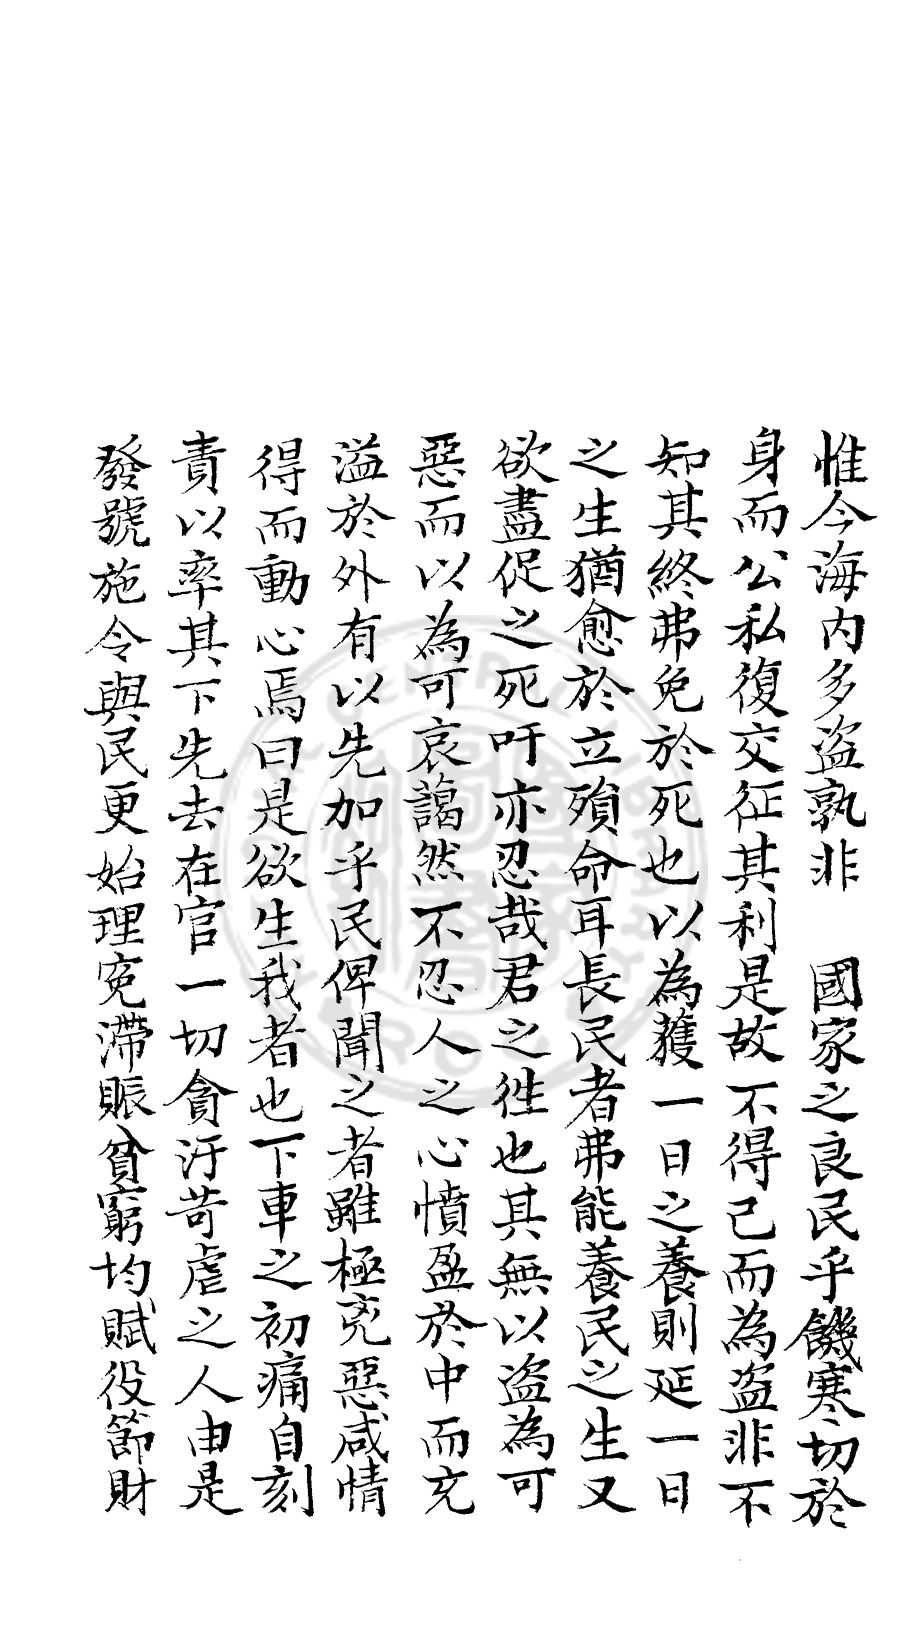 惟今海内多盜孰非　國家之良民乎饑寒切於
身而公私復交征其利是故不得已而為盜非不
知其終弗免於死也以為獲一日之養則延一日
之生猶愈於立殞命耳長民者弗能養民之生又
欲盡促之死吁亦忍哉君之徃也其無以盜為可
惡而以為可哀藹然不忍人之心憤盈於中而充
溢於外有以先加乎民俾聞之者雖極兇惡咸情
得而動心焉曰是欲生我者也下車之初痛自刻
責以率其下先去在官一切貪汙苛虐之人由是
發號施令與民更始理寃滯賑貧窮均賦役節財